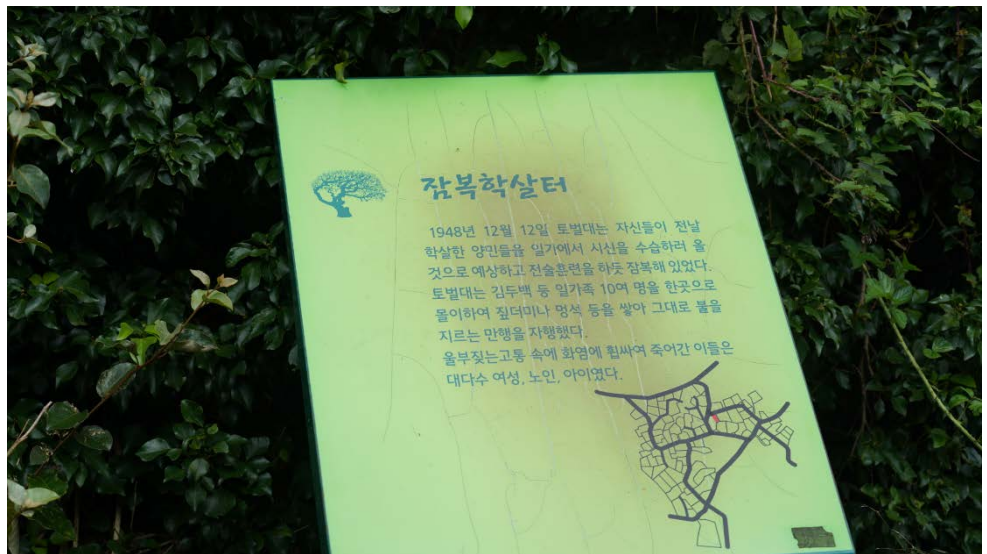 잠복학살터
1948년 12월 12일 토벌대는 자신들이 전날
학살한 양민들을 일가에서 시신을 수습하러 올
것으로 예상하고 전술훈련을 하듯 잠복해 있었다.
토벌대는 김두백 등 일가족 10여 명을 한곳으로
몰이하여 짚더미나 멍석 등을 쌓아 그대로 불을
지르는 만행을 자행했다.
울부짖는고통 속에 화염에 휩싸여 죽어간 이들은
대다수 여성, 노인, 아이였다.